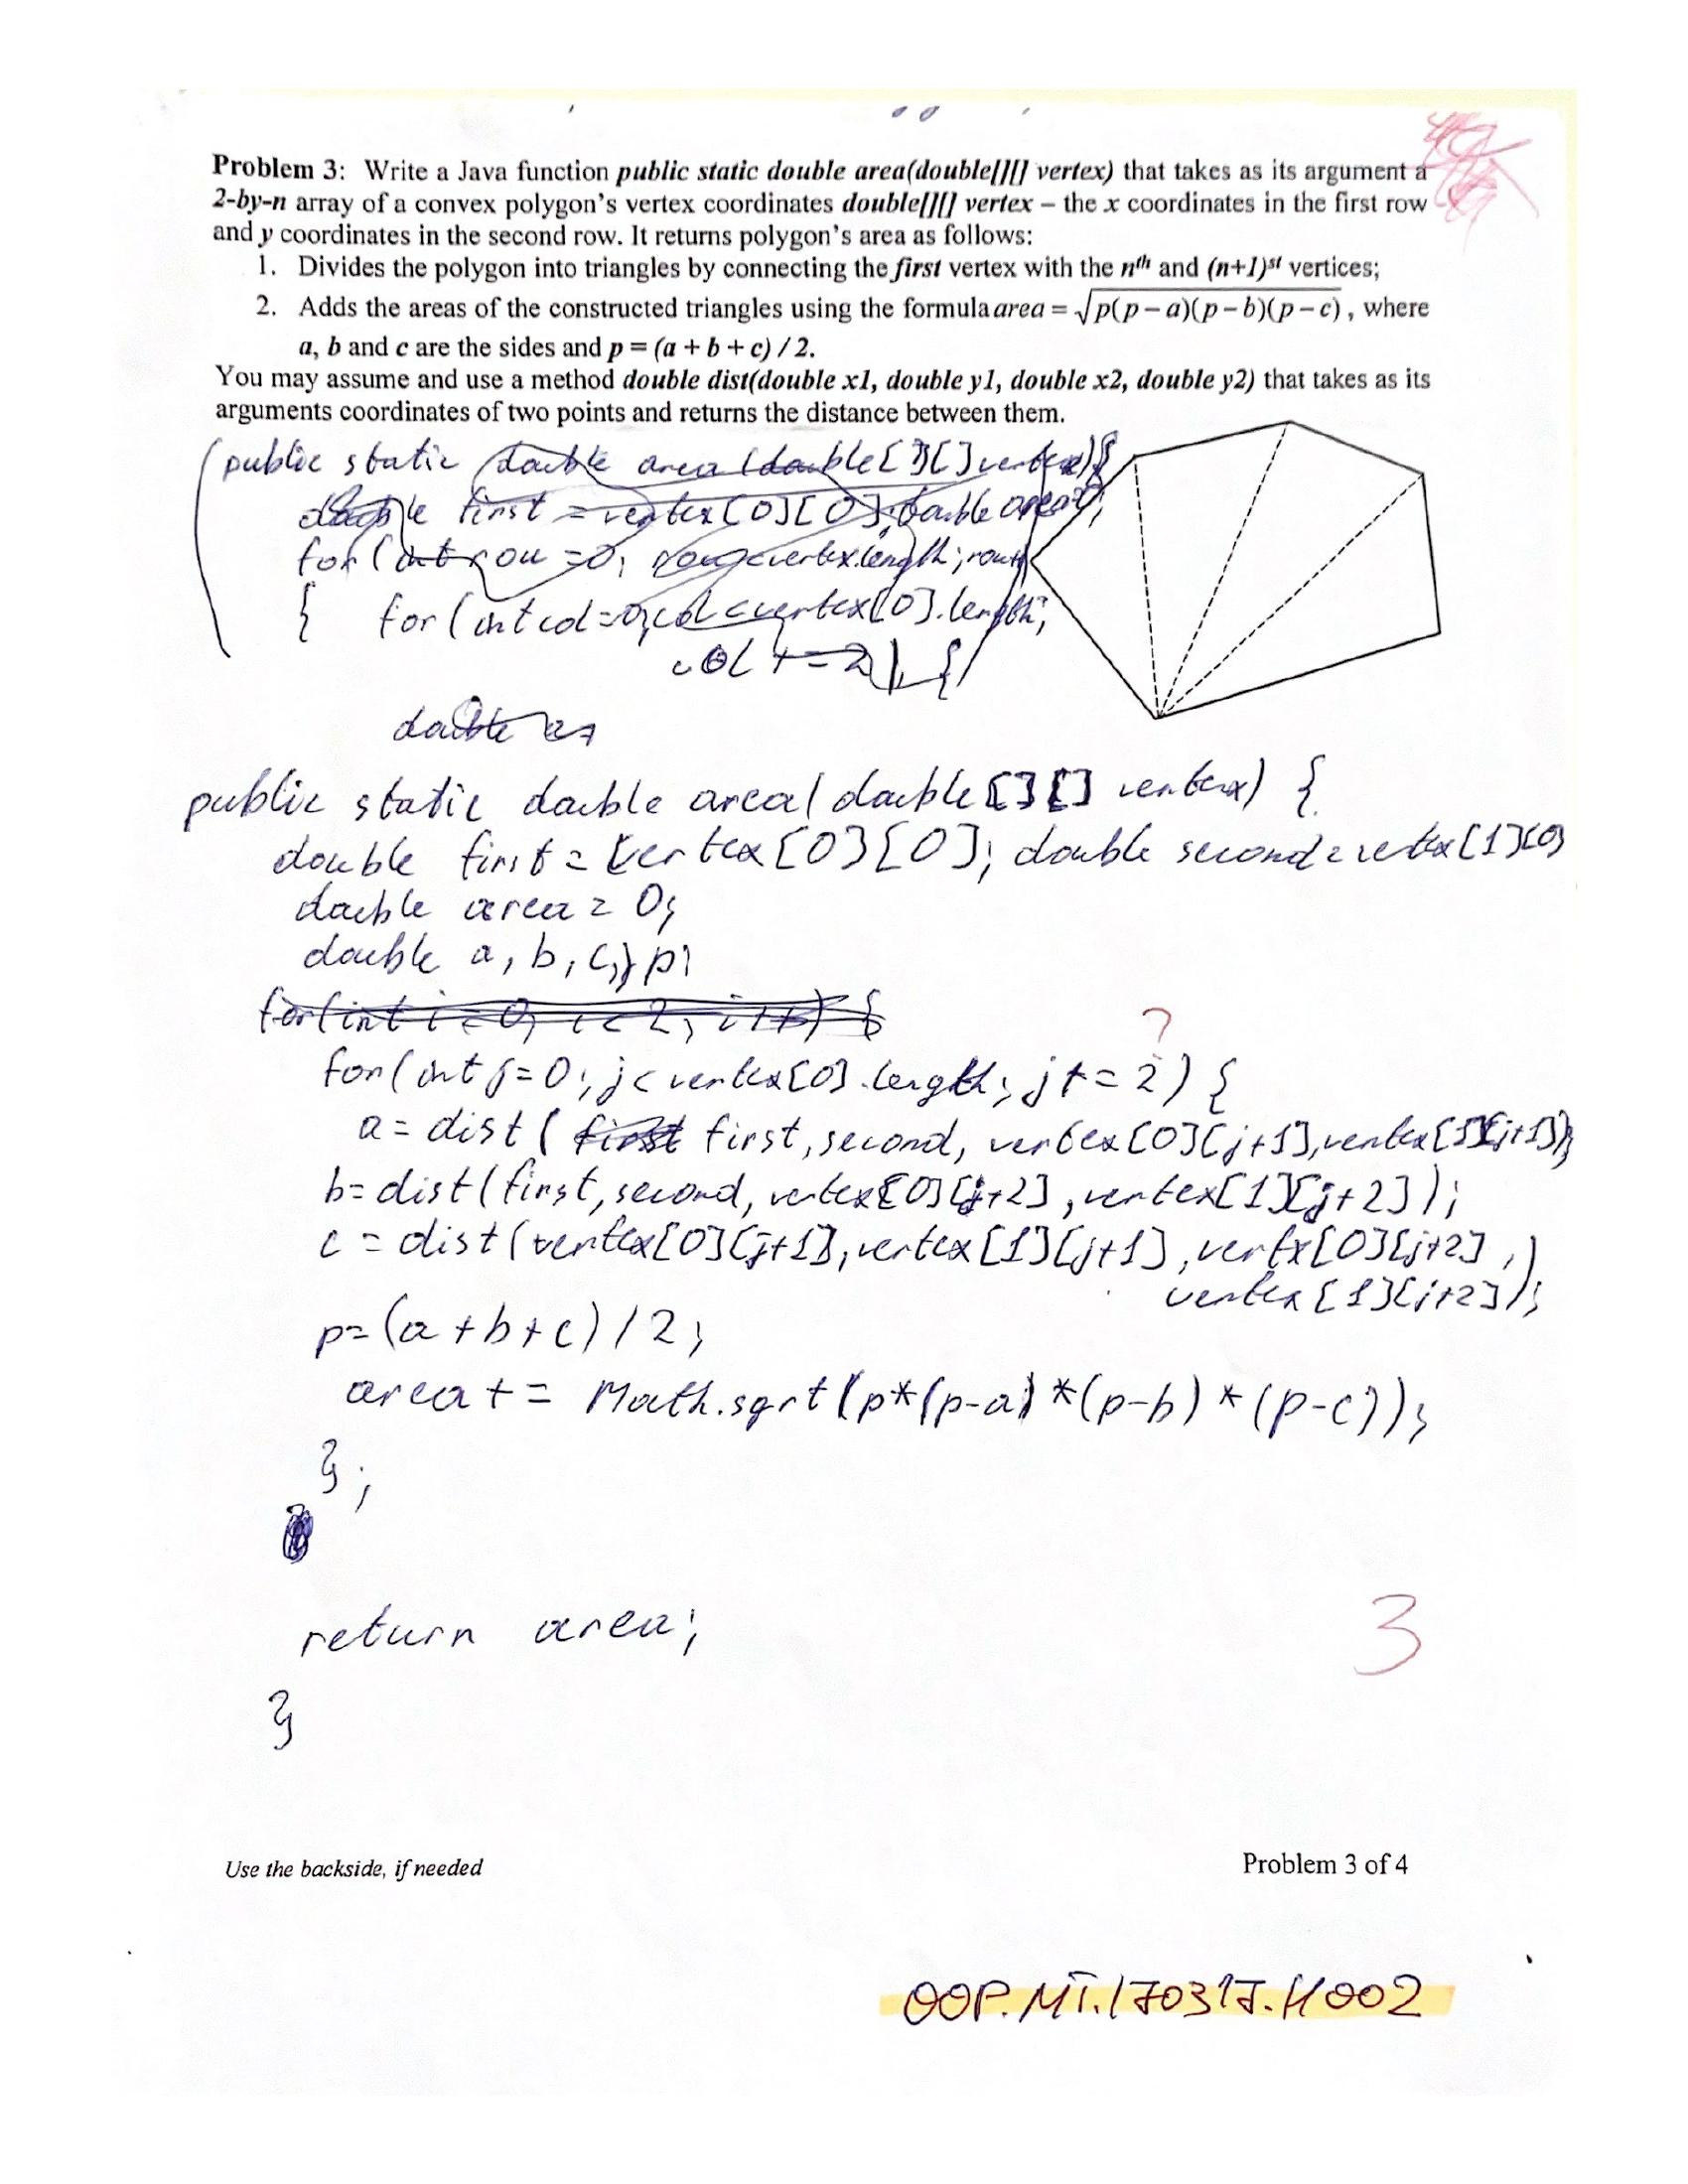 Problem 3: Write a Java function public static double area(double[][] vertex) that takes as its argument a
2-by-n array of a convex polygon's vertex coordinates double[][] vertex – the x coordinates in the first row
and y coordinates in the second row. It returns polygon's area as follows:
1. Divides the polygon into triangles by connecting the first vertex with the nth and (n+1)st vertices;
2. Adds the areas of the constructed triangles using the formula area = √p(p – a)(p – b)(p – c) , where
a, b and c are the sides and p = (a + b + c) / 2.
You may assume and use a method double dist(double x1, double y1, double x2, double y2) that takes as its
arguments coordinates of two points and returns the distance between them.
public static double area (double[][] vertex){
double first = vertex[0][0]; double area=0;
for (int row =0; row<vertex.length; row++
{ for (int col=0; col<vertex[0].length;
col += 2) {
double a=
public static double area( double[][] vertex) {
double first = vertex[0][0]; double second = vertex[1][0]
double area = 0;
double a, b, c, p;
for(int i=0; i<2; i++) {
?
for(int j=0; j< vertex[0].length; j+=2) {
a= dist( first first, second, vertex[0][j+1], vertex[1][j+1]);
b= dist(first, second, vertex[0][j+2], vertex[1][j+2]);
c = dist(vertex[0][j+1], vertex[1][j+1], vertx[0][j+2] ,
vertex[1][j+2]);
p= (a+b+c) / 2;
area += Math.sqrt(p*(p-a)*(p-b)*(p-c));
};
return area;
3
}
Use the backside, if needed
Problem 3 of 4
OOP.MT.170317.H002